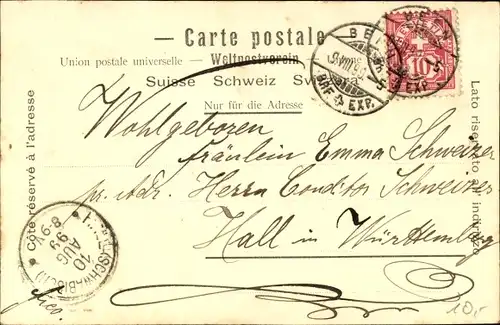 Carte postale
Union postale universelle — Weltpostverein
Suisse Schweiz
Nur für die Adresse
Côté réservé à l'adresse
Lato riservato
indirizzo
BERN
EXP.
BRF. EXP.
10
Wohlgeboren
Fräulein Emma Schweizer
pr. Adr. Herrn Conditor Schweizer
Hall in Württemberg
10 AUG 99
10,-